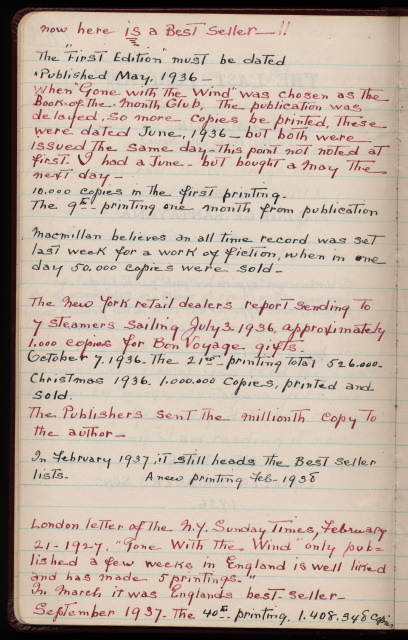 now here is a Best Seller—!!
The "First Edition" must be dated
"Published May, 1936—
when "Gone with the Wind" was chosen as the
Book-of-the-Month Club, The publication was
delayed, so more copies be printed, These
were dated June, 1936— but both were
issued the same day—this point not noted at
first. I had a June— but bought a May the
next day—
10,000 copies in the first printing.
The 9th printing one month from publication
Macmillan believes an all time record was set
last week for a work of fiction, when in one
day 50.000 copies were sold—
The New York retail dealers report sending to
7 steamers sailing July 3. 1936, approximately
1.000 copies for Bon Voyage gifts.
October 7. 1936. The 21st printing total 526.000.
Christmas 1936. 1.000.000 copies, printed and
sold.
The Publishers sent the millionth copy to
the author—
In February 1937, it still heads the Best Seller
lists. A new printing Feb-1938
London letter of the N.Y. Sunday Times, February
21-1927, "Gone With the Wind" only pub=
lished a few weeks in England is well liked
and has made 5 printings."
In March it was Englands best-seller—
September 1937. The 40th printing. 1.408.348 copies